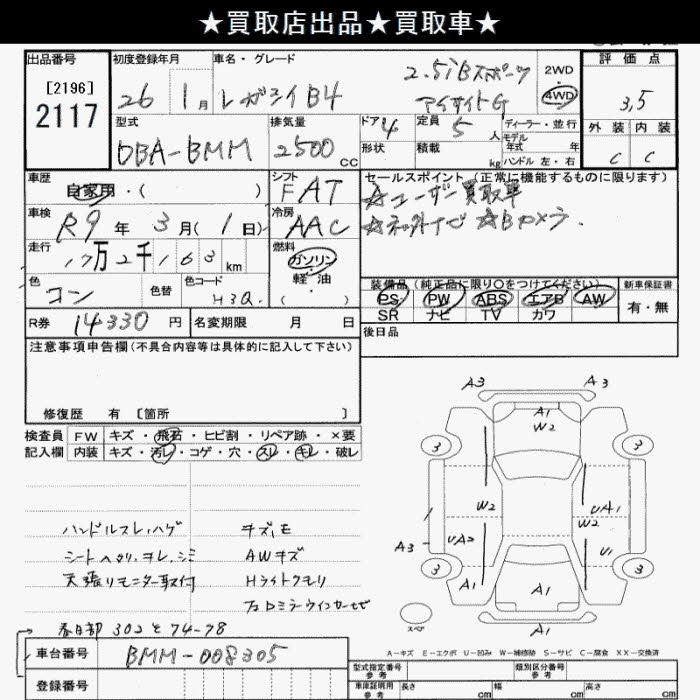 ★買取店出品★買取車★
出品番号
[2196]
2117
初度登録年月
26 1月
車名・グレード
レガシイB4
2.5iBスポーツ
アイサイトG
2WD
4WD
評価点
3,5
外装 内装
C C
型式
DBA-BMM
排気量
2500 CC
ドア 4
形状
定員 5 人
積載 kg
ディーラー・並行
モデル年式 年
ハンドル 左・右
車歴
自家用・( )
シフト
FAT
セールスポイント(正常に機能するものに限ります)
☆ユーザー買取車
☆ネット外ナビ ☆Bカメラ.
車検
R9年 3月(1日)
冷房
AAC
走行
17万2千163km
燃料
ガソリン
軽油
( )
色
コン
色替
色コード
H3Q.
装備品(純正品に限り○をつけてください)
PS PW ABS エアB AW
SR ナビ TV カワ
新車保証書
有・無
R券 14330 円
名変期限 月 日
後日品
注意事項申告欄(不具合内容等は具体的に記入して下さい)
修復歴 有 [箇所 ]
検査員記入欄
FW キズ・飛石・ヒビ割・リペア跡・×要
内装 キズ・汚レ・コゲ・穴・スレ・キレ・破レ
ハンドルスレ,ハゲ
シートヘタリ,ヨレ,シミ
天張リモニター取付
キズ,モ
AWキズ
Hライトクモリ
春日部 302 と 74-78
車台番号 BMM-008305
登録番号
A3 A3
A1
W2
3 3
W2 UA1
W2
A3 UA2 U1
3 3
A1 A1
スペア
A1
A-キズ E-エクボ U-凹み W-補修跡 S-サビ C-腐食 XX-交換済
型式指定番号 参考
類別区分番号 参考
車庫証明用 参考
長さ cm 幅 cm 高さ cm